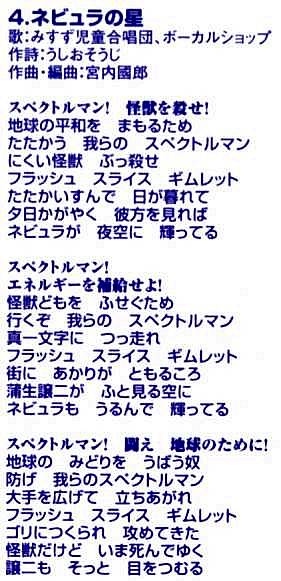 4.ネビュラの星
歌:みすず児童合唱団、ボーカルショップ
作詩:うしおそうじ
作曲・編曲:宮内國郎
スペクトルマン! 怪獣を殺せ!
地球の平和を まもるため
たたかう 我らの スペクトルマン
にくい怪獣 ぶっ殺せ
フラッシュ スライス ギムレット
たたかいすんで 日が暮れて
夕日かがやく 彼方を見れば
ネビュラが 夜空に 輝ってる
スペクトルマン!
エネルギーを補給せよ!
怪獣どもを ふせぐため
行くぞ 我らの スペクトルマン
真一文字に つっ走れ
フラッシュ スライス ギムレット
街に あかりが ともるころ
蒲生譲二が ふと見る空に
ネビュラも うるんで 輝ってる
スペクトルマン! 闘え 地球のために!
地球の みどりを うばう奴
防げ 我らのスペクトルマン
大手を広げて 立ちあがれ
フラッシュ スライス ギムレット
ゴリにつくられ 攻めてきた
怪獣だけど いま死んでゆく
譲二も そっと 目をつむる